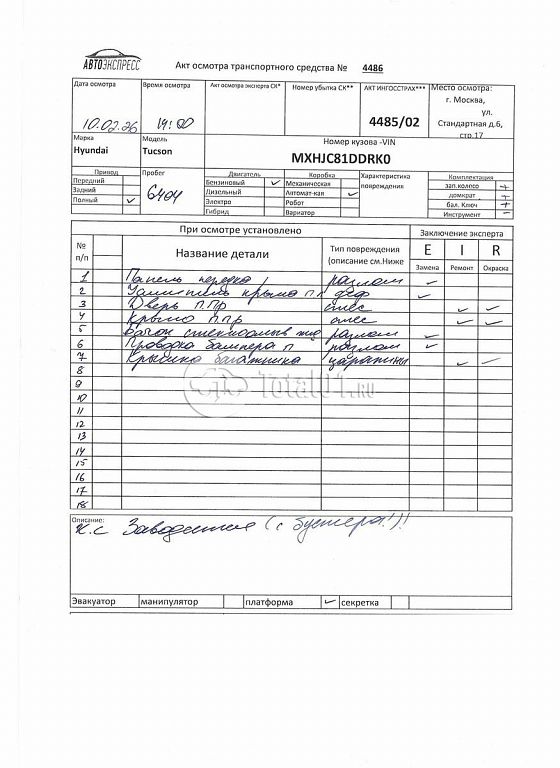 АВТОЭКСПРЕСС
Акт осмотра транспортного средства № 4486
Дата осмотра Время осмотра Акт осмотра эксперта СК* Номер убытка СК** АКТ ИНГОССТРАХ*** Место осмотра:
10.02.26 14:00 4485/02 г. Москва,
ул.
Стандартная д.6,
стр.17
Марка Модель Номер кузова -VIN
Hyundai Tucson MXHJC81DDRK0
Привод Пробег Двигатель Коробка Характеристика повреждения Комплектация
Передний Бензиновый ✓ Механическая зап.колесо +
Задний 6404 Дизельный Автомат-кая ✓ домкрат +
Полный ✓ Электро Робот бал. Ключ +
Гибрид Вариатор Инструмент –
При осмотре установлено Заключение эксперта
№ п/п Название детали Тип повреждения (описание см.Ниже E I R
Замена Ремонт Окраска
1 Панель передка разлом ✓
2 крыла п.л ✓
3 Дверь п.пр ✓ ✓
4 Крыло п.пр ✓ ✓
5 Бачок разлом ✓
6 Проводка бампера п разлом ✓
7 Крышка багажника царапины ✓ ✓
8
9
10
11
12
13
14
15
16
17
18
Total01.RU
Описание:
к.с Заводится (с бустера!)!
Эвакуатор манипулятор платформа ✓ секретка